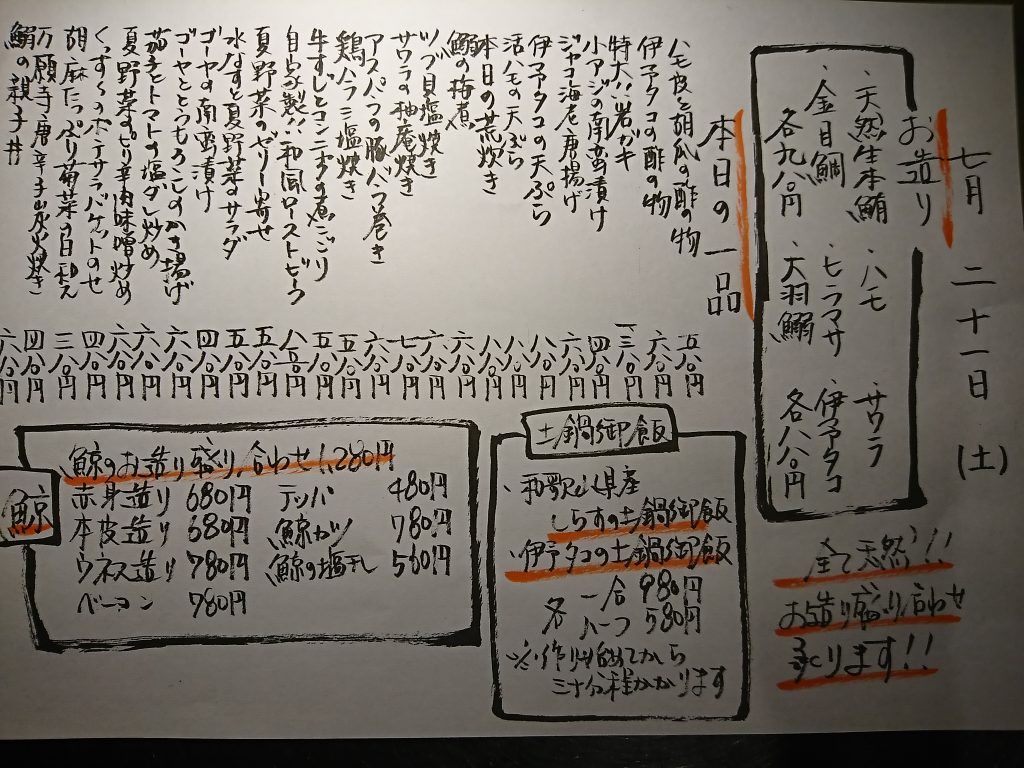 七月二十一日(土)
お造り
・天然生本鮪
・金目鯛
各九八〇円
・ハモ
・ヒラマサ
・大羽鰯
・サワラ
・伊予タコ
各八八〇円
全て天然!!
お造り盛り合わせ
承ります!!
本日の一品
ハモ皮と胡瓜の酢の物 五八〇円
伊予タコの酢の物 六八〇円
特大!!岩ガキ 一三八〇円
小アジの南蛮漬け 四八〇円
ジャコ海老唐揚げ 六八〇円
伊予タコの天ぷら 八八〇円
活ハモの天ぷら 八八〇円
本日の荒炊き 八八〇円
鰯の梅煮 六八〇円
ツブ貝塩焼き 六八〇円
サワラの柚庵焼き 七八〇円
アスパラの豚バラ巻き 六八〇円
鶏ハラミ塩焼き 五八〇円
牛すじとコンニャクの煮こごり 五八〇円
自家製!!和風ローストビーフ 八八〇円
夏野菜のゼリー寄せ 五八〇円
水なすと夏野菜のサラダ 五八〇円
ゴーヤの南蛮漬け 四八〇円
ゴーヤととうもろこしのかき揚げ 六八〇円
茄子とトマトの塩ダレ炒め 六八〇円
夏野菜ピリ辛肉味噌炒め 六八〇円
ポテサラバケットのせ 四八〇円
胡麻たっぷり菊菜の白和え 三八〇円
万願寺唐辛子炭火焼き 四八〇円
鰯の親子丼 六八〇円
土鍋御飯
・和歌山県産
しらすの土鍋御飯
・伊予タコの土鍋御飯
各 一合 980円
ハーフ 580円
※作り始めてから
三十分程かかります
鯨
鯨のお造り盛り合わせ 1,280円
赤身造り 680円 テッパ 480円
本皮造り 680円 鯨カツ 780円
ウネス造り 780円 鯨の塩干し 560円
ベーコン 780円